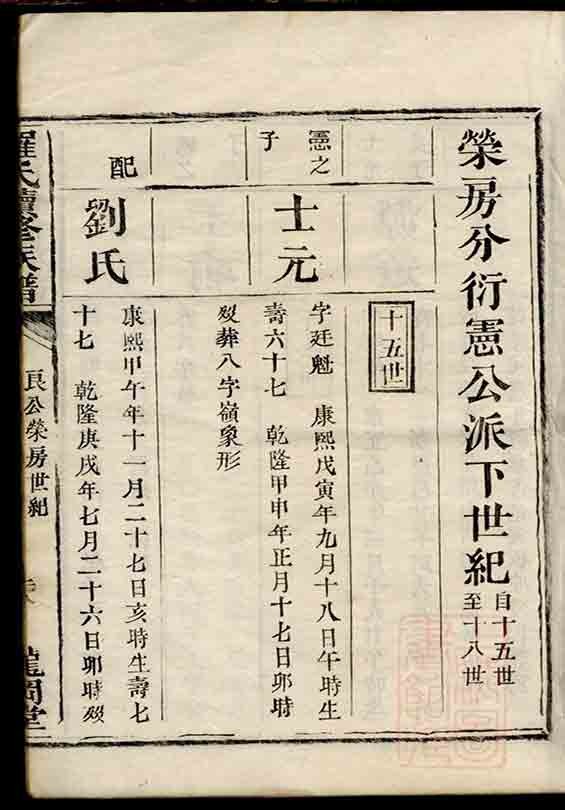 榮房分衍憲公派下世紀自十五世至十八世
十五世
憲之子
士元
字廷魁 康熙戊寅年九月十八日午時生
壽六十七 乾隆甲申年正月十七日卯時
歿葬八字嶺象形
配
劉氏
康熙甲午年十一月二十七日亥時生壽七
十七 乾隆庚戌年七月二十六日卯時歿
羅氏續修族譜
良公榮房世紀